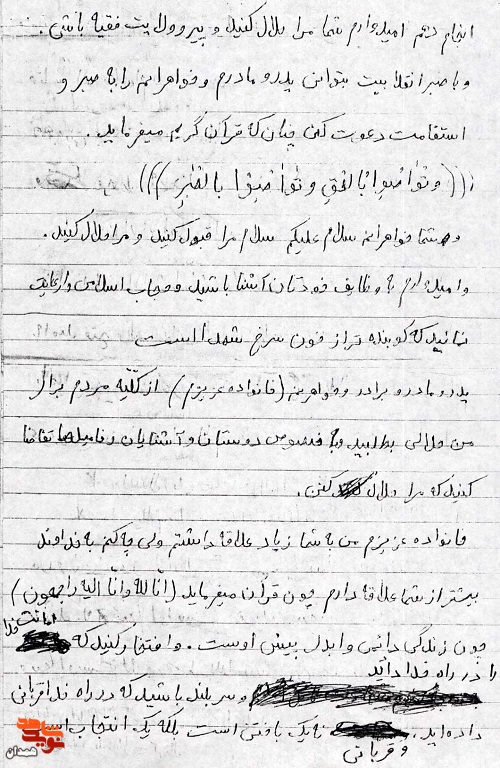 انجام دهم امیدوارم شما مرا حلال کنید و پیرو ولایت فقیه باشی.
و با صبر انقلابیت بتوانی پدر و مادرم و خواهرانم را به صبر و
استقامت دعوت کنی چنان که قرآن کریم میفرماید.
(((وَ تَواصَوا بِالحَقِ وَ تَواصَوا بِالصَّبرِ)))
و شما خواهرانم سلام علیکم سلام مرا قبول کنید و مرا حلال کنید.
و امیدوارم به وظایف خودتان آشنا باشید و حجاب اسلامی را رعایت
نمائید که کوبنده تر از خون سرخ شهدا است
پدر و مادر و برادر و خواهرانم (خانواده عزیزم) از کلّیه مردم برای
من حلالی بطلبید و به خصوص دوستان و آشنایان و فامیلها تقاضا
کنید که مرا حلال کنن.
خانواده عزیزم من به شما زیاد علاقه داشتم ولی چه کنم به خداوند
بیشتر از شما علاقه دارم چون قرآن میفرماید (انّا لله و انّا الیه راجعون)
چون زندگی دائمی و ابدی پیش اوست. و افتخار کنید که امانت خدا
را در راه خدا دادید
و سربلند باشید که در راه خدا قربانی
داده اید. نه یک باختی است بلکه یک انتخاب است
و قربانی
نوید شاهد
همدان